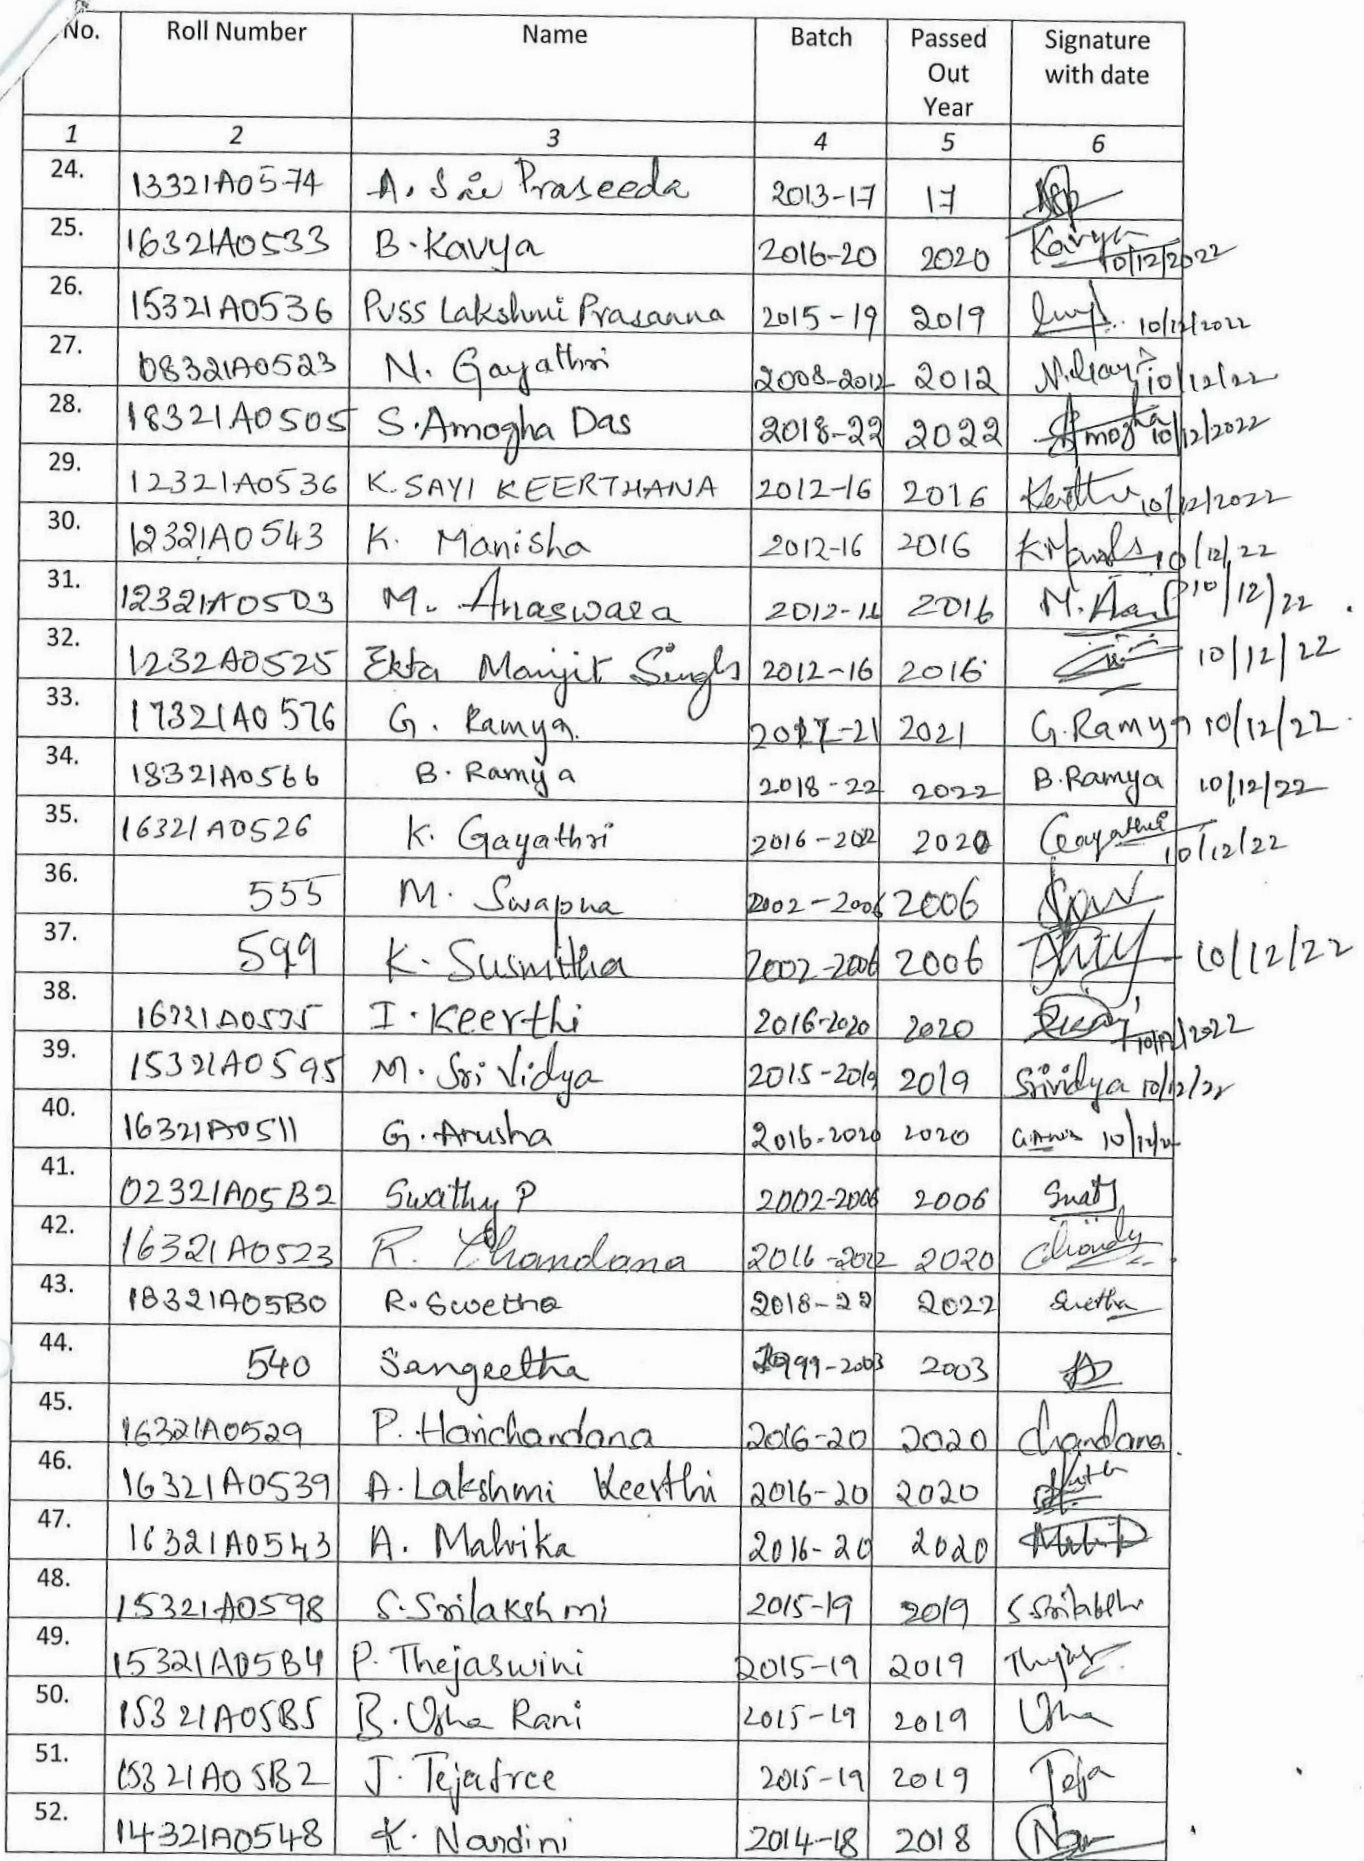 No. Roll Number Name Batch Passed Out Year Signature with date
1 2 3 4 5 6
24. 13321A0574 A. Sai Praseeda 2013-17 17
25. 16321A0533 B. Kavya 2016-20 2020 Kavya 10/12/2022
26. 15321A0536 PVSS Lakshmi Prasanna 2015-19 2019 10/12/2022
27. 08321A0523 N. Gayathri 2008-2012 2012 10/12/22
28. 18321A0505 S. Amogha Das 2018-22 2022 Amogha 10/12/2022
29. 12321A0536 K. SAYI KEERTHANA 2012-16 2016 10/12/2022
30. 12321A0543 K. Manisha 2012-16 2016 10/12/22
31. 12321A0503 M. Anaswara 2012-16 2016 10/12/22
32. 1232A0525 Ekta Manjit Singh 2012-16 2016 10/12/22
33. 17321A0576 G. Ramya 2017-21 2021 G. Ramya 10/12/22
34. 18321A0566 B. Ramya 2018-22 2022 B. Ramya 10/12/22
35. 16321A0526 K. Gayathri 2016-2022 2020 Gayathri 10/12/22
36. 555 M. Swapna 2002-2006 2006
37. 599 K. Susmitha 2002-2006 2006 10/12/22
38. 16321A0535 I. Keerthi 2016-2020 2020 10/12/2022
39. 15321A0595 M. Sri Vidya 2015-2019 2019 Srividya 10/12/22
40. 16321A0511 G. Arusha 2016-2020 2020 10/12/22
41. 02321A05B2 Swathy P 2002-2006 2006
42. 16321A0523 R. Chandana 2016-2022 2020
43. 18321A05B0 R. Swetha 2018-22 2022 Swetha
44. 540 Sangeetha 1999-2003 2003
45. 16321A0529 P. Harichandana 2016-20 2020 Chandana.
46. 16321A0539 A. Lakshmi Keerthi 2016-20 2020
47. 16321A0543 A. Malvika 2016-20 2020
48. 15321A0598 S. Srilakshmi 2015-19 2019
49. 15321A05B4 P. Thejaswini 2015-19 2019
50. 15321A05B5 B. Usha Rani 2015-19 2019 Usha
51. 15321A05B2 J. Tejasree 2015-19 2019 Teja
52. 14321A0548 K. Nandini 2014-18 2018